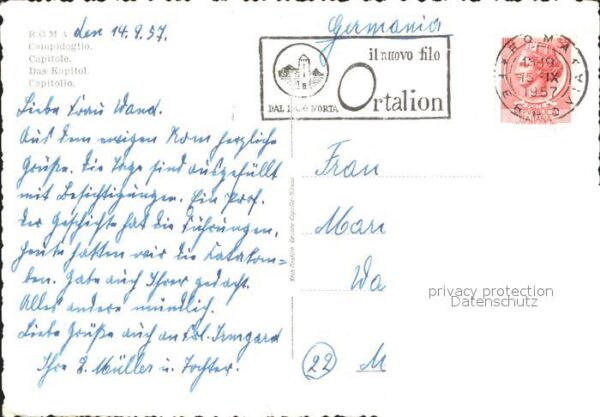 ROMA
Campidoglio.
Capitole.
Das Kapitol.
Capitolio.
den 14.9.57.
Germania
il nuovo filo
Ortalion
ROMA
15 IX
1957
Liebe Frau Wand.
Aus dem ewigen Rom herzliche
Grüße. Die Tage sind ausgefüllt
mit Besichtigungen. Ein Prof.
der Geschichte hat die Führungen,
heute hatten wir die Katakom-
ben. Habe auch Ihrer gedacht.
Alles andere mündlich.
Liebe Grüße auch an Frl. Irmgard
Ihre L. Müller u. Tochter.
Frau
Mari
Wa
privacy protection
Datenschutz
22 M